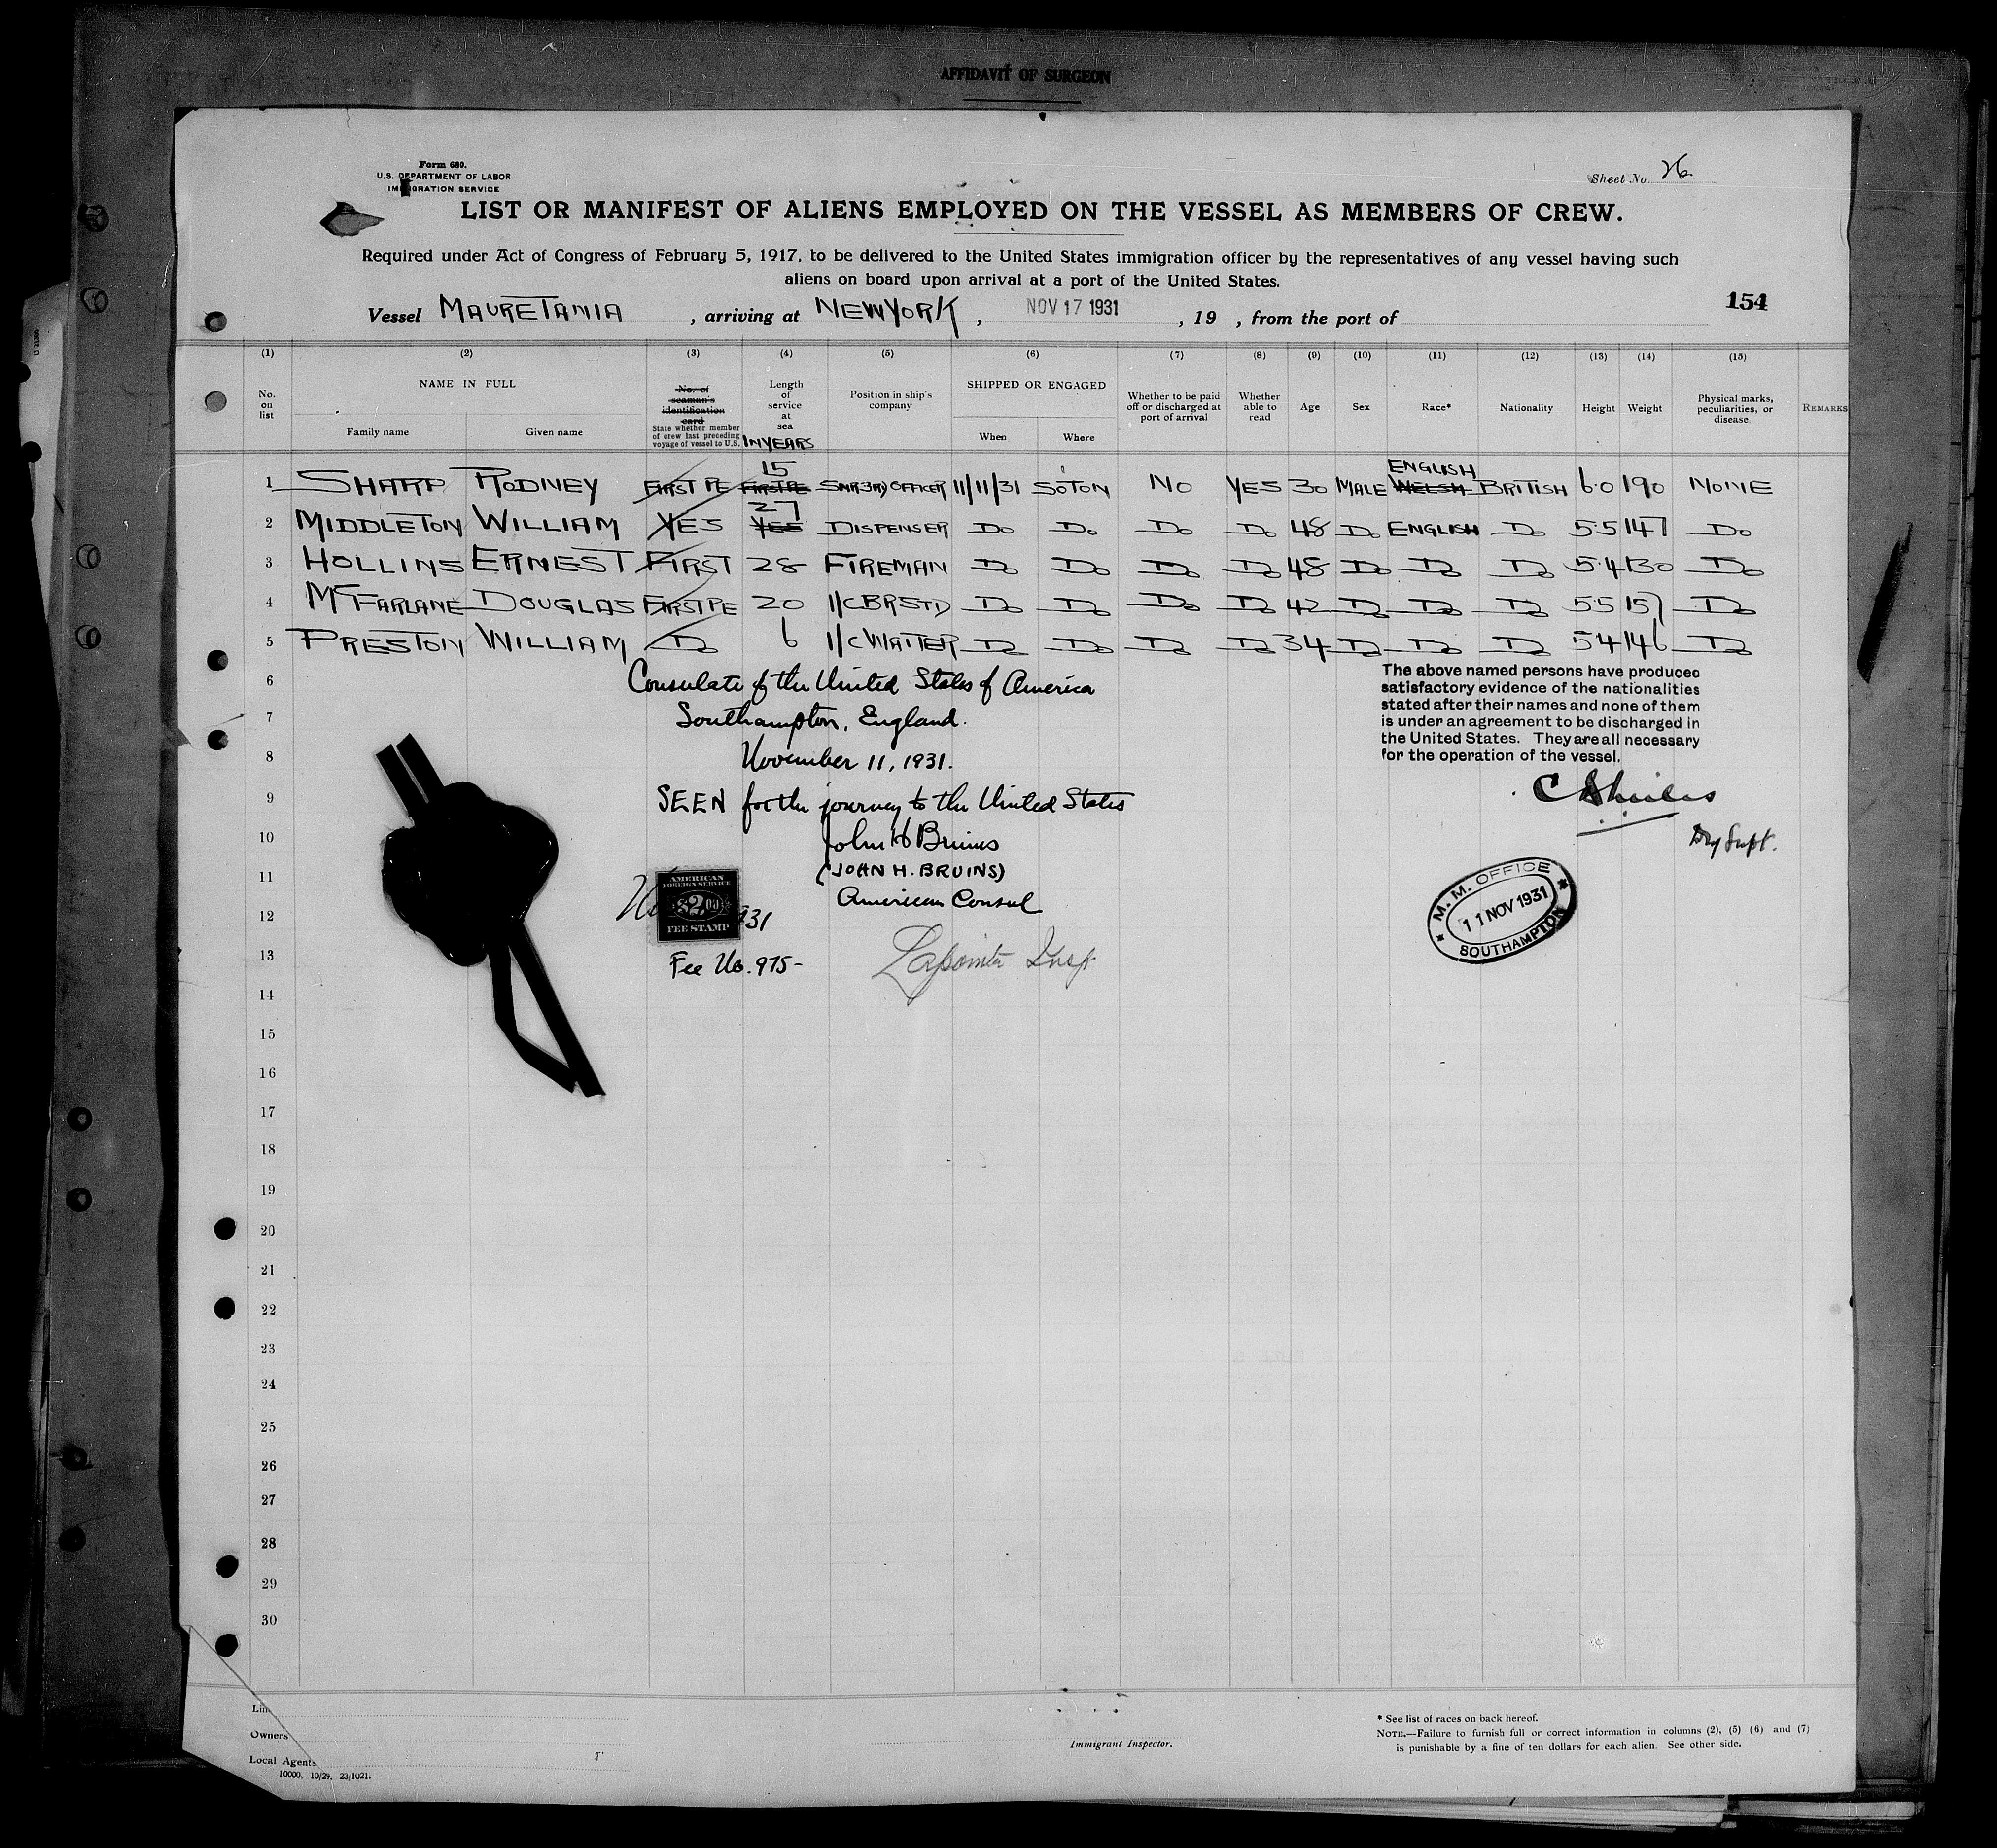 AFFIDAVIT OF SURGEON
Form 680.
U.S. DEPARTMENT OF LABOR
IMMIGRATION SERVICE
Sheet No. 26
LIST OR MANIFEST OF ALIENS EMPLOYED ON THE VESSEL AS MEMBERS OF CREW.
Required under Act of Congress of February 5, 1917, to be delivered to the United States immigration officer by the representatives of any vessel having such
aliens on board upon arrival at a port of the United States.
154
Vessel MAURETANIA, arriving at NEW YORK, NOV 17 1931, 19 , from the port of
(1) (2) (3) (4) (5) (6) (7) (8) (9) (10) (11) (12) (13) (14) (15)
No. on list
NAME IN FULL
Family name Given name
No. of seaman's identification card
State whether member of crew last preceding voyage of vessel to U.S.
Length of service at sea
IN YEARS
Position in ship's company
SHIPPED OR ENGAGED
When Where
Whether to be paid off or discharged at port of arrival
Whether able to read
Age Sex Race* Nationality Height Weight
Physical marks, peculiarities, or disease
REMARKS
15 ENGLISH
1 SHARP RODNEY FIRST PE FIRST PE SNR 3RD OFFICER 11/11/31 SOTON NO YES 30 MALE WELSH BRITISH 6·0 190 NONE
27
2 MIDDLETON WILLIAM YES YES DISPENSER DO DO DO DO 48 DO ENGLISH DO 5·5 147 DO
3 HOLLINS ERNEST FIRST 28 FIREMAN DO DO DO DO 48 DO DO DO 5·4 130 DO
4 McFARLANE DOUGLAS FIRST PE 20 1/C BRSTD DO DO DO DO 42 DO DO DO 5·5 157 DO
5 PRESTON WILLIAM DO 6 1/C WAITER DO DO DO DO 34 DO DO DO 5·4 146 DO
6 Consulate of the United States of America
7 Southampton, England.
8 November 11, 1931.
9 SEEN for the journey to the United States
10 John H Bruins
11 (JOHN H. BRUINS)
12 American Consul
AMERICAN
FOREIGN SERVICE
$2.00
FEE STAMP
931
13 Fee No. 975-
Insp
The above named persons have produced
satisfactory evidence of the nationalities
stated after their names and none of them
is under an agreement to be discharged in
the United States. They are all necessary
for the operation of the vessel.
C Shiels
Dry Supt.
M. M. OFFICE
11 NOV 1931
SOUTHAMPTON
14
15
16
17
18
19
20
21
22
23
24
25
26
27
28
29
30
Owners
Local Agents
10000. 10/29. 23/1021.
Immigrant Inspector.
* See list of races on back hereof.
NOTE.—Failure to furnish full or correct information in columns (2), (5) (6) and (7)
is punishable by a fine of ten dollars for each alien. See other side.